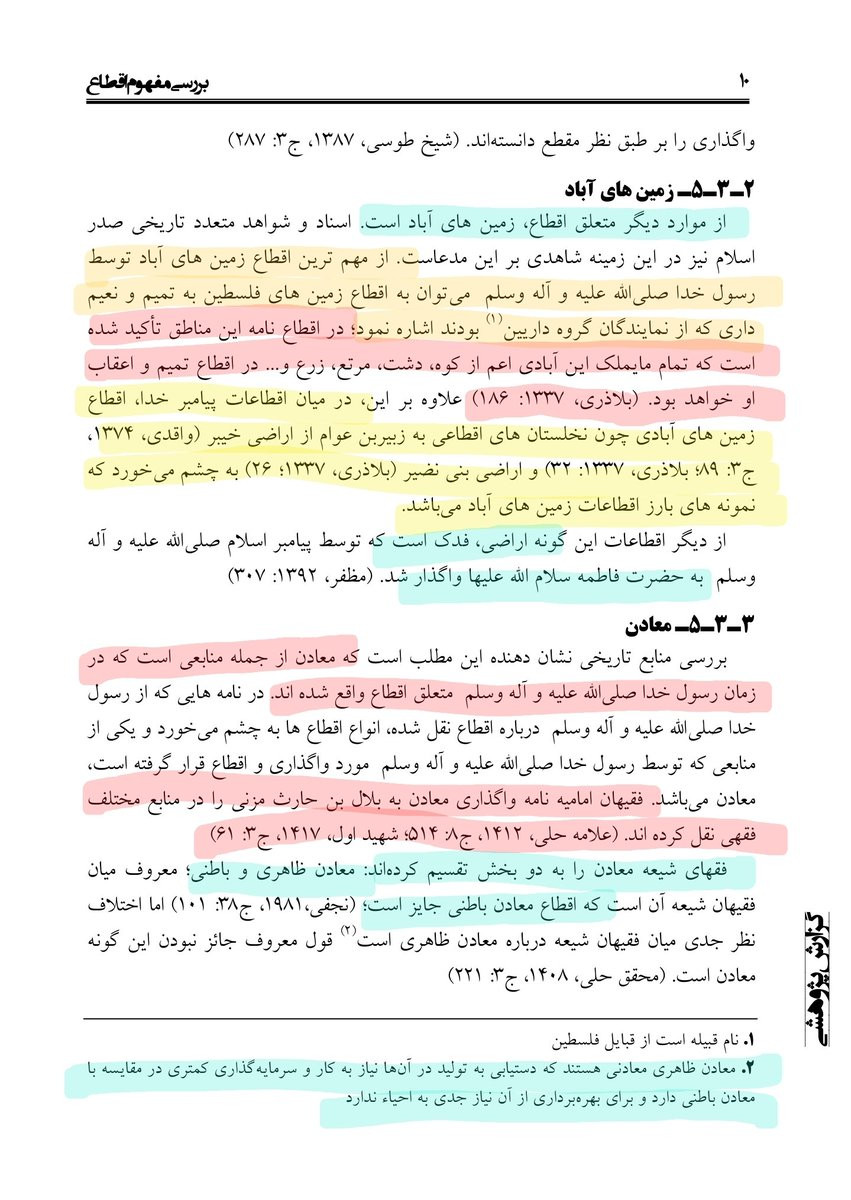 بررسی مفهوم اقطاع ۱۰
واگذاری را بر طبق نظر مقطع دانسته‌اند. (شیخ طوسی، ۱۳۸۷، ج۳: ۲۸۷)
۲ـ۳ـ۵ـ زمین های آباد
از موارد دیگر متعلق اقطاع، زمین های آباد است. اسناد و شواهد متعدد تاریخی صدر
اسلام نیز در این زمینه شاهدی بر این مدعاست. از مهم ترین اقطاع زمین های آباد توسط
رسول خدا صلی‌الله علیه و آله وسلم می‌توان به اقطاع زمین های فلسطین به تمیم و نعیم
داری که از نمایندگان گروه داریین(۱) بودند اشاره نمود؛ در اقطاع نامه این مناطق تأکید شده
است که تمام مایملک این آبادی اعم از کوه، دشت، مرتع، زرع و... در اقطاع تمیم و اعقاب
او خواهد بود. (بلاذری، ۱۳۳۷: ۱۸۶) علاوه بر این، در میان اقطاعات پیامبر خدا، اقطاع
زمین های آبادی چون نخلستان های اقطاعی به زبیربن عوام از اراضی خیبر (واقدی، ۱۳۷۴،
ج۳: ۸۹؛ بلاذری، ۱۳۳۷: ۳۲) و اراضی بنی نضیر (بلاذری، ۱۳۳۷؛ ۲۶) به چشم می‌خورد که
نمونه های بارز اقطاعات زمین های آباد می‌باشد.
از دیگر اقطاعات این گونه اراضی، فدک است که توسط پیامبر اسلام صلی‌الله علیه و آله
وسلم به حضرت فاطمه سلام الله علیها واگذار شد. (مظفر، ۱۳۹۲: ۳۰۷)
۳ـ۳ـ۵ـ معادن
بررسی منابع تاریخی نشان دهنده این مطلب است که معادن از جمله منابعی است که در
زمان رسول خدا صلی‌الله علیه و آله وسلم متعلق اقطاع واقع شده اند. در نامه هایی که از رسول
خدا صلی‌الله علیه و آله وسلم درباره اقطاع نقل شده، انواع اقطاع ها به چشم می‌خورد و یکی از
منابعی که توسط رسول خدا صلی‌الله علیه و آله وسلم مورد واگذاری و اقطاع قرار گرفته است،
معادن می‌باشد. فقیهان امامیه نامه واگذاری معادن به بلال بن حارث مزنی را در منابع مختلف
فقهی نقل کرده اند. (علامه حلی، ۱۴۱۲، ج۸: ۵۱۴؛ شهید اول، ۱۴۱۷، ج۳: ۶۱)
فقهای شیعه معادن را به دو بخش تقسیم کرده‌اند: معادن ظاهری و باطنی؛ معروف میان
فقیهان شیعه آن است که اقطاع معادن باطنی جایز است؛ (نجفی،۱۹۸۱، ج۳۸: ۱۰۱) اما اختلاف
نظر جدی میان فقیهان شیعه درباره معادن ظاهری است(۲) قول معروف جائز نبودن این گونه
معادن است. (محقق حلی، ۱۴۰۸، ج۳: ۲۲۱)
۱. نام قبیله است از قبایل فلسطین
۲. معادن ظاهری معادنی هستند که دستیابی به تولید در آن‌ها نیاز به کار و سرمایه‌گذاری کمتری در مقایسه با
معادن باطنی دارد و برای بهره‌برداری از آن نیاز جدی به احیاء ندارد
گزارش پژوهشی